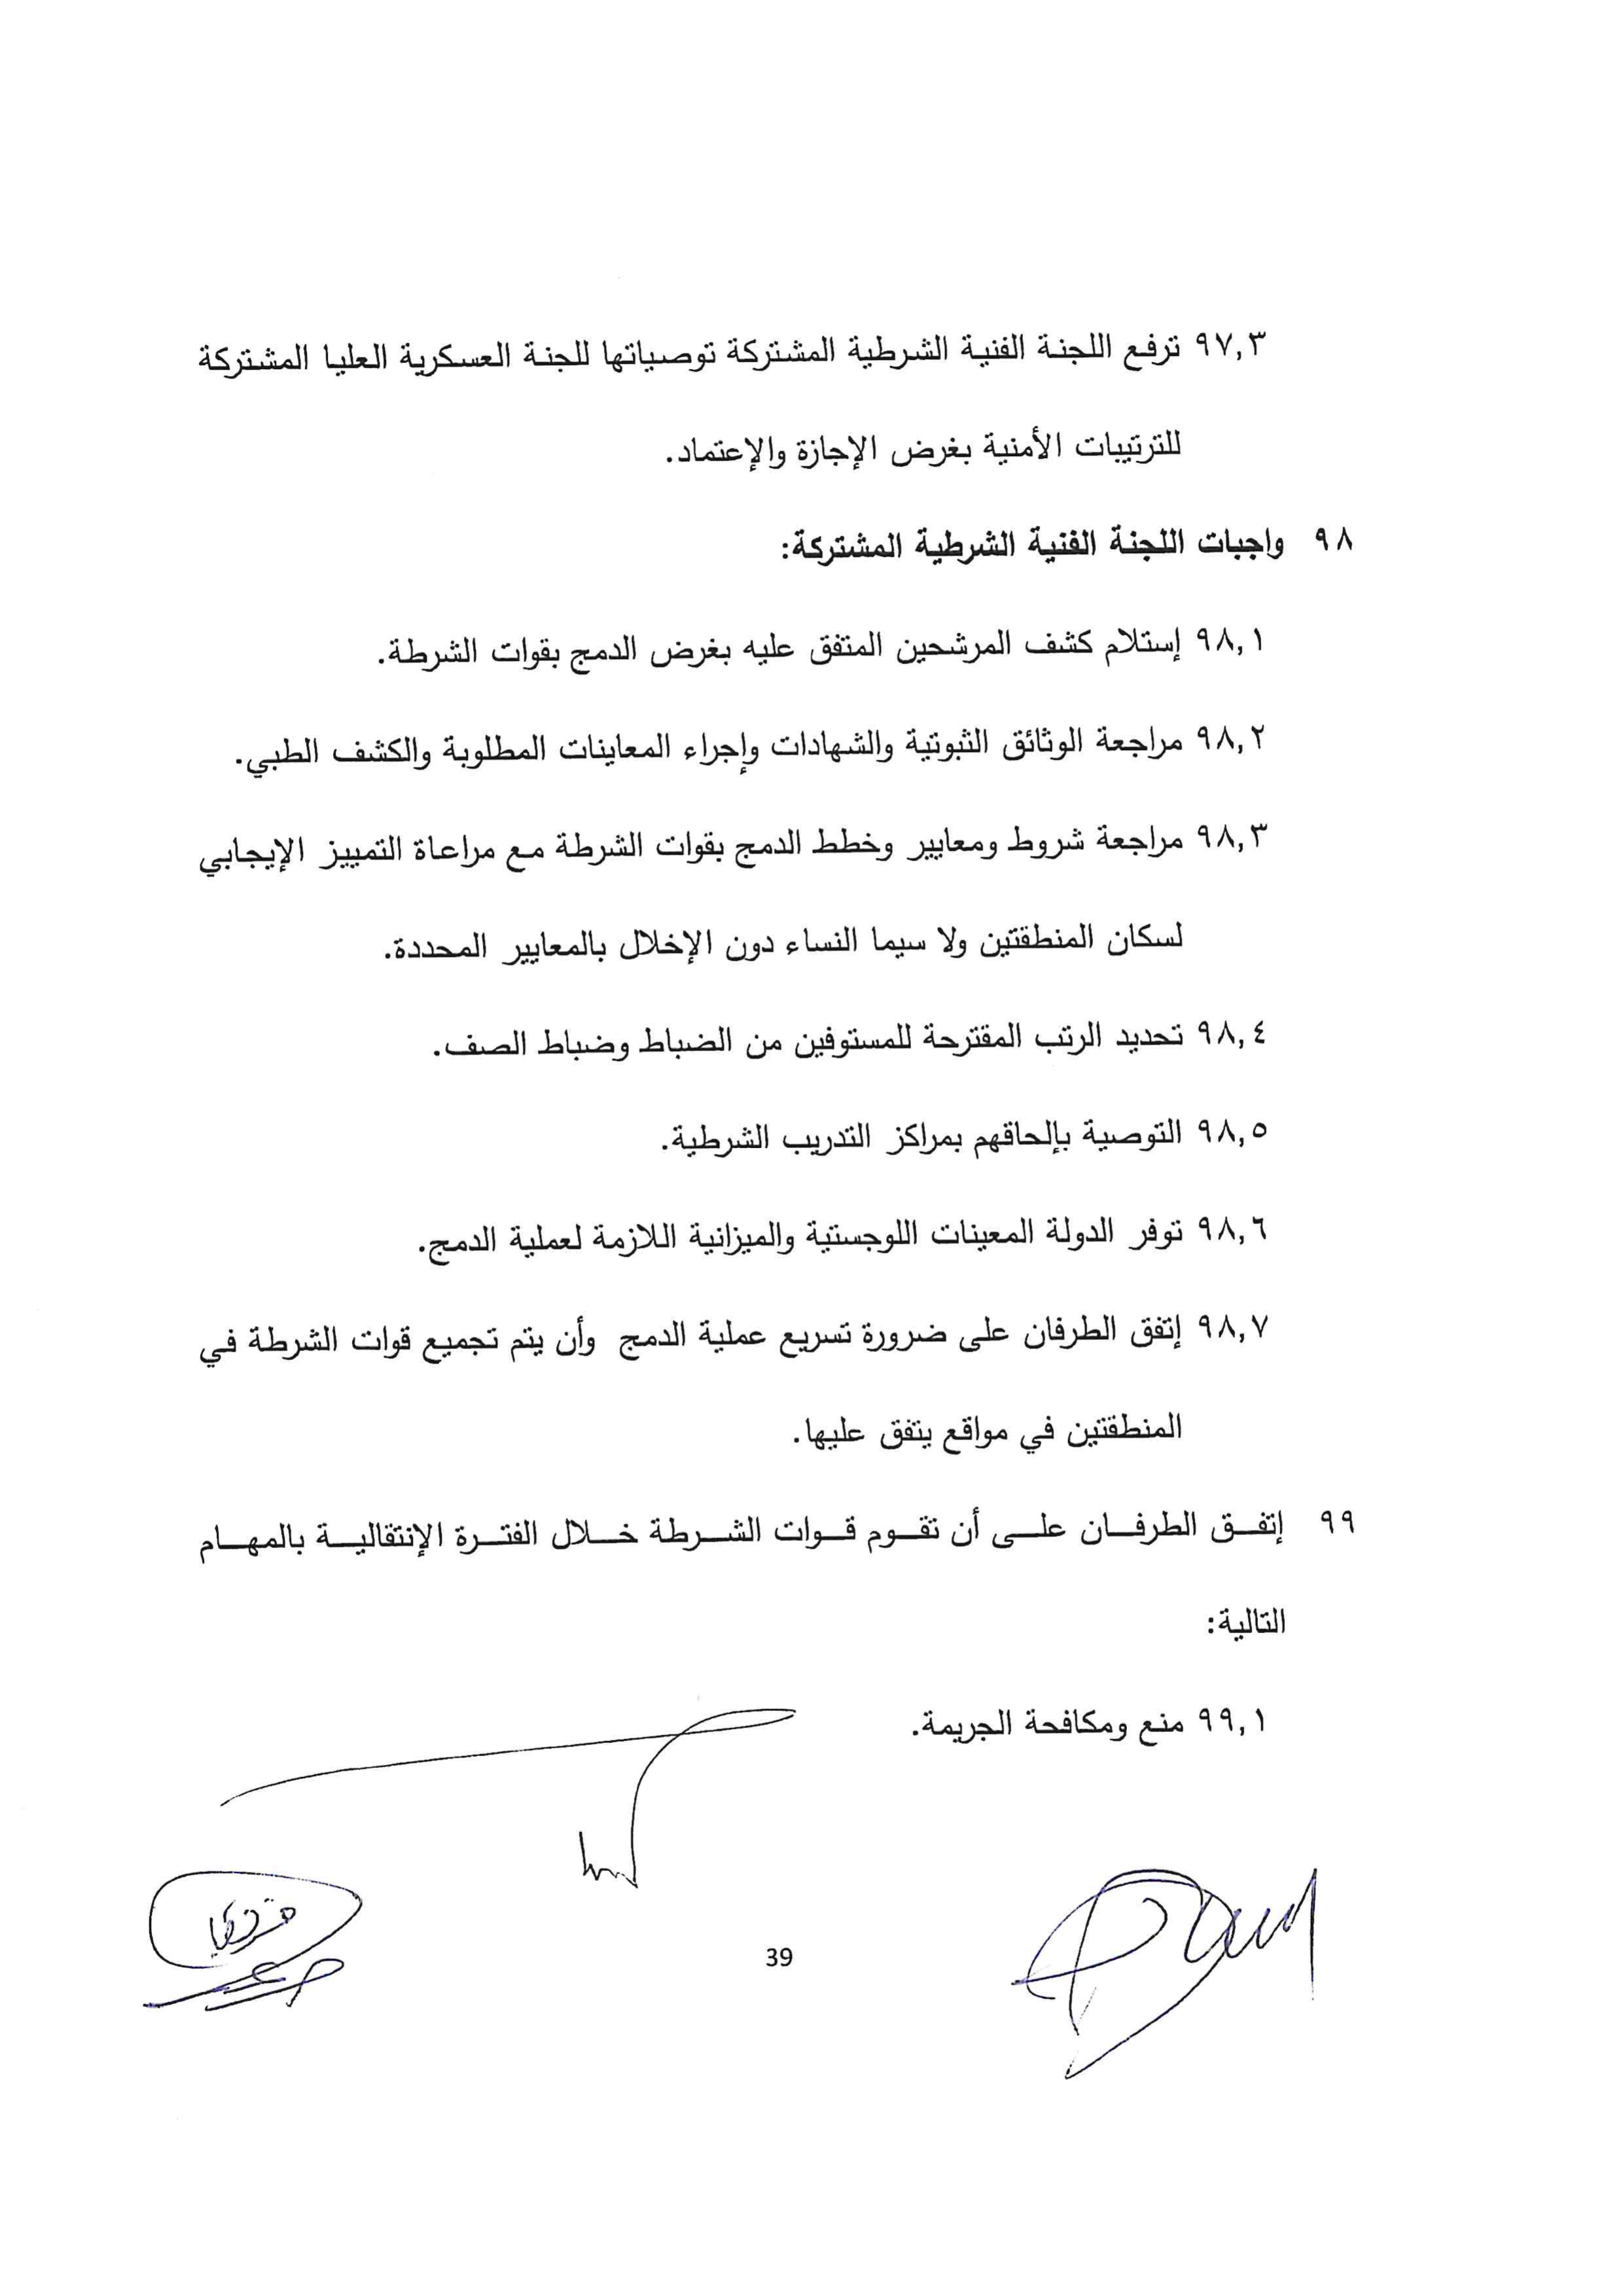 ٩٧,٣ ترفع اللجنة الفنية الشرطية المشتركة توصياتها للجنة العسكرية العليا المشتركة
للترتيبات الأمنية بغرض الإجازة والإعتماد.
٩٨ واجبات اللجنة الفنية الشرطية المشتركة:
٩٨,١ إستلام كشف المرشحين المتفق عليه بغرض الدمج بقوات الشرطة.
٩٨,٢ مراجعة الوثائق الثبوتية والشهادات وإجراء المعاينات المطلوبة والكشف الطبي.
٩٨,٣ مراجعة شروط ومعايير وخطط الدمج بقوات الشرطة مع مراعاة التمييز الإيجابي
لسكان المنطقتين ولا سيما النساء دون الإخلال بالمعايير المحددة.
٩٨,٤ تحديد الرتب المقترحة للمستوفين من الضباط وضباط الصف.
٩٨,٥ التوصية بإلحاقهم بمراكز التدريب الشرطية.
٩٨,٦ توفر الدولة المعينات اللوجستية والميزانية اللازمة لعملية الدمج.
٩٨,٧ إتفق الطرفان على ضرورة تسريع عملية الدمج وأن يتم تجميع قوات الشرطة في
المنطقتين في مواقع يتفق عليها.
٩٩ إتفق الطرفان على أن تقوم قوات الشرطة خلال الفترة الإنتقالية بالمهام
التالية:
٩٩,١ منع ومكافحة الجريمة.
39